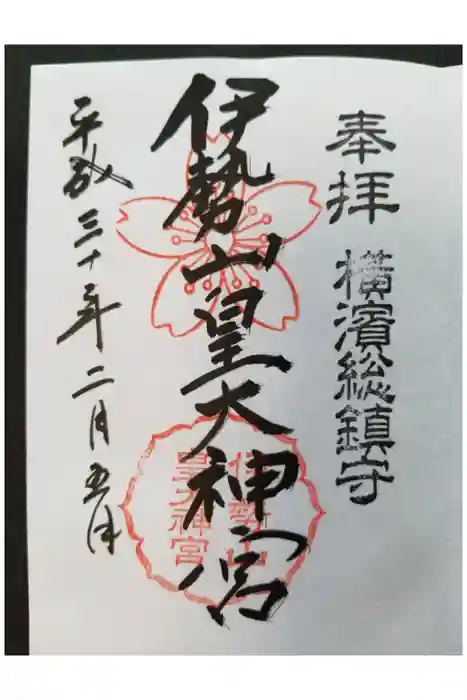 奉拝 横濱総鎮守
伊勢山皇大神宮
伊勢山
皇大神宮
平成三十年二月五日